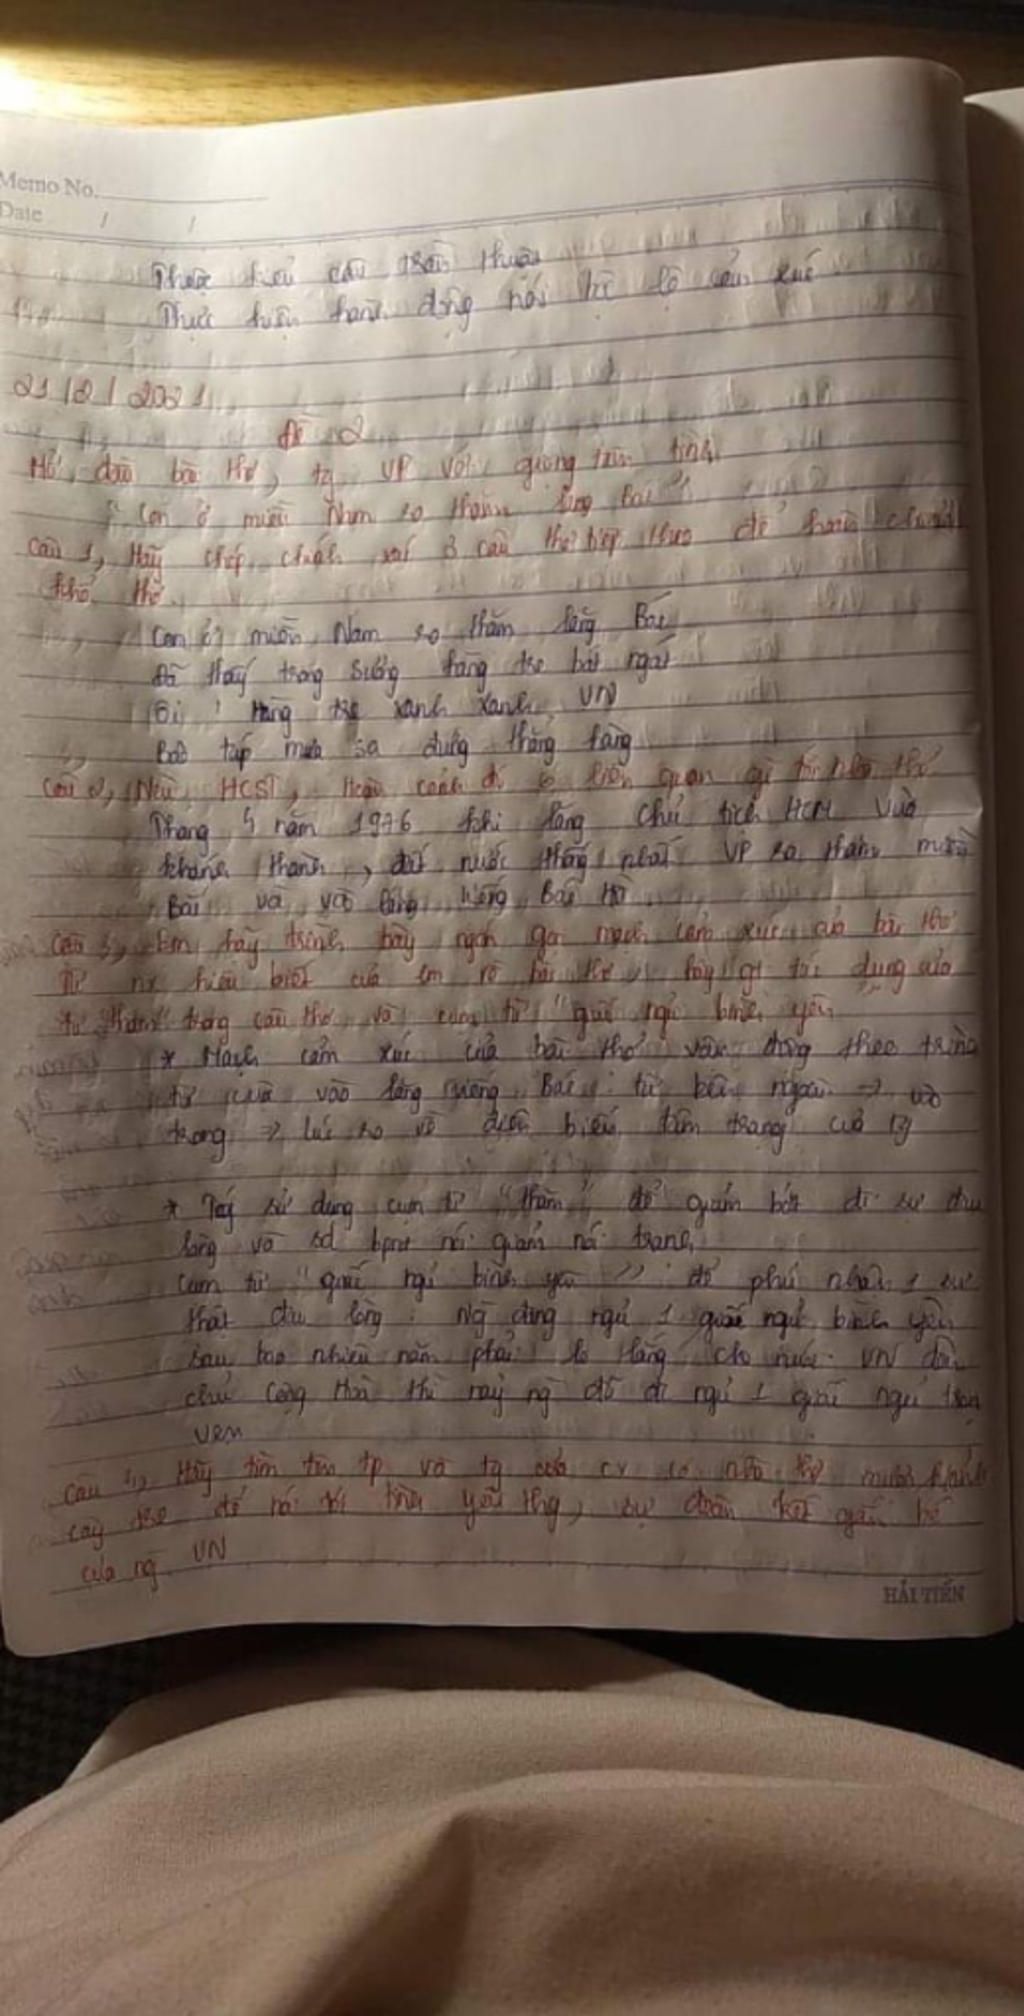 Memo No.
Date / /
Thuộc kiểu câu trần thuật
Thực hiện hành động nói bộ lộ cảm xúc
21/2/2021
Đề 2
Mở đầu bài thơ, tg VP với giọng trầm tĩnh
"Con ở miền Nam ra thăm lăng Bác"
Câu 1, Hãy chép chính xác 3 câu thơ tiếp theo để hoàn chỉnh
khổ thơ
Con ở miền Nam ra thăm lăng Bác
Đã thấy trong sương hàng tre bát ngát
Ôi! Hàng tre xanh xanh VN
Bão táp mưa sa đứng thẳng hàng
Câu 2, Nêu HCST, Hoàn cảnh đó có liên quan gì tới bài thơ
Tháng 5 năm 1976 khi lăng Chủ tịch HCM vừa
khánh thành, đất nước thống nhất VP ra thăm miền
Bắc và vào lăng viếng Bác Hồ
Câu 3, Em hãy trình bày ngắn gọn mạch cảm xúc của bài thơ
Từ n~ hiểu biết của em về bài thơ, hãy gt tác dụng của
từ "thăm" trong câu thơ và cụm từ "giấc ngủ bình yên
* Mạch cảm xúc của bài thơ vận động theo trình
tự của vào lăng viếng Bác: từ bên ngoài -> vào
trong -> lúc ra về diễn biến tâm trạng của tg
* Tác sử dụng cụm từ "thăm" để giảm bớt đi sự đau
lòng và sd bpnt nói giảm nói tránh
Cụm từ "giấc ngủ bình yên" để phủ nhận 1 sự
thật đau lòng: Ng đang ngủ 1 giấc ngủ bình yên
sau bao nhiêu năm phải lo lắng cho nước VN dân
chủ Cộng Hoà thì nay ng đó đi ngủ 1 giấc ngủ trọn
vẹn
Câu 4, Hãy tìm tên tp và tg của có mượn hình
cây tre để nói tới tình yêu thg, sự đoàn kết gắn bó
của ng VN
HẢI TIẾN